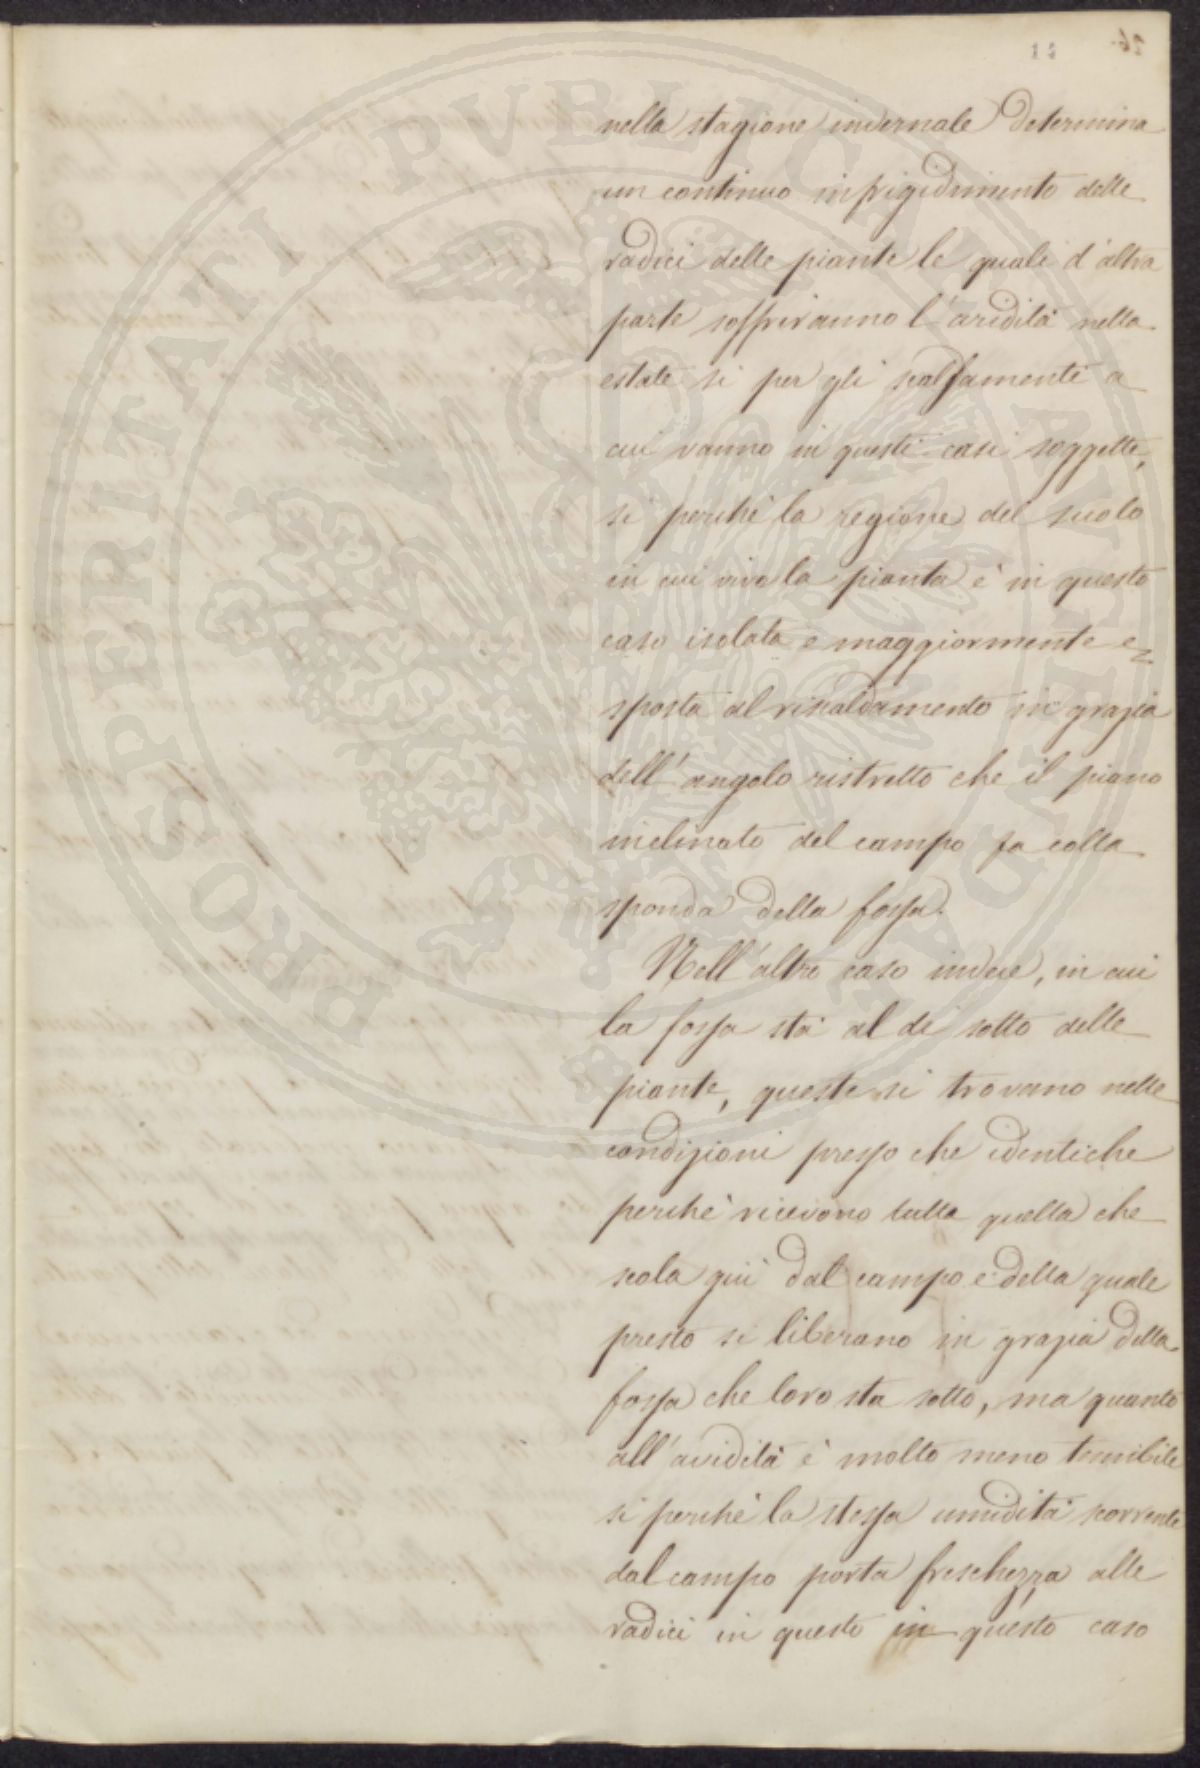 nella stagione invernale determina
un continuo infrigidimento delle
radici delle piante le quali d'altra
parte soffriranno l'aridità nella
estate si per gli scalfamenti a
cui vanno in questi casi soggette,
si perchè la regione del suolo
in cui vive la pianta è in questo
caso isolata e maggiormente e=
sposta al riscaldamento in grazia
dell'angolo ristretto che il piano
inclinato del campo fa colla
sponda della fossa.
Nell'altro caso invece, in cui
la fossa stà al di sotto delle
piante, queste si trovano nelle
condizioni presso che identiche
perchè ricevono tutta quella che
scola giù dal campo e della quale
presto si liberano in grazia della
fossa che loro sta sotto, ma quanto
all'aridità è molto meno temibile
si perchè la stessa umidità scorrente
dal campo porta freschezza alle
radici in questo in questo caso
PROSPERITATI PVBLICAE AVGENDAE